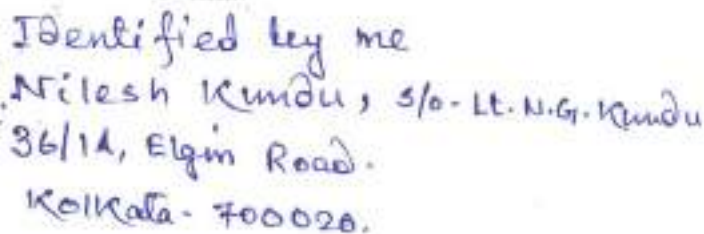 Identified by me
Nilesh Kundu, S/o- Lt. N.G. Kundu
36/1A, Elgin Road.
Kolkata- 700020.